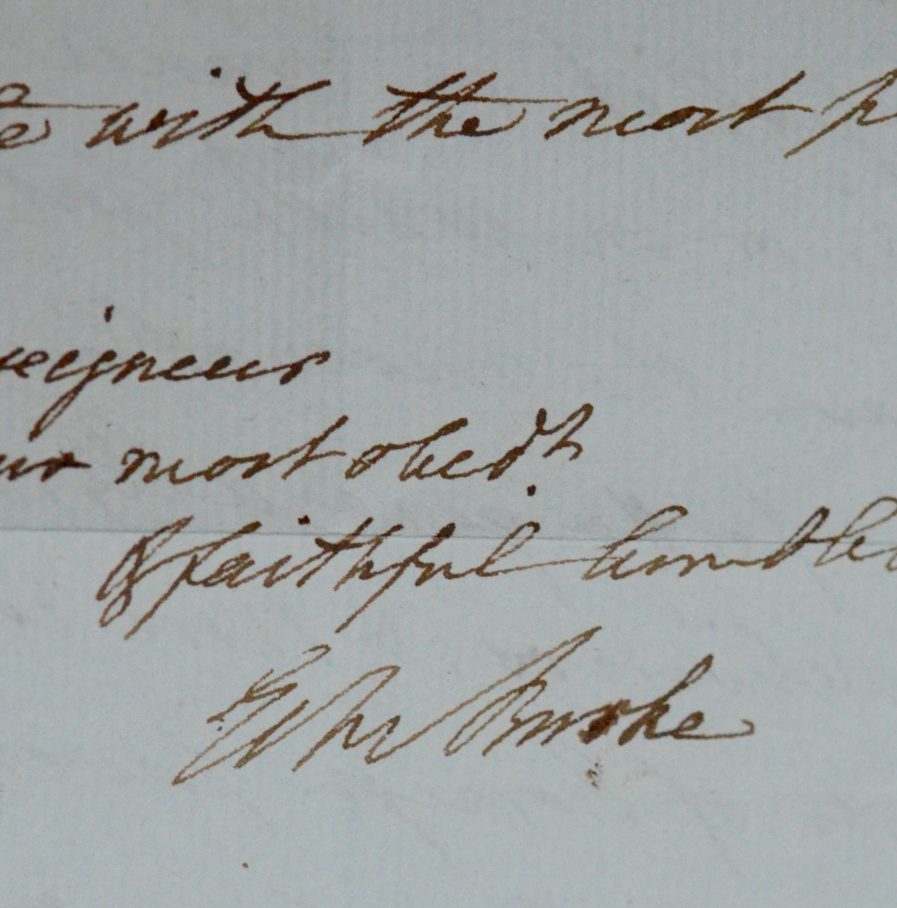 with the most
seigneur
most obedt.
& faithful humble
Edm Burke